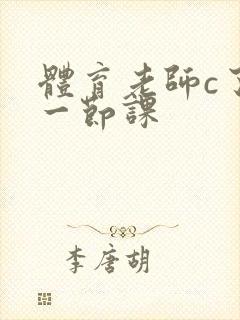 體育老師c了
一節課
李唐胡